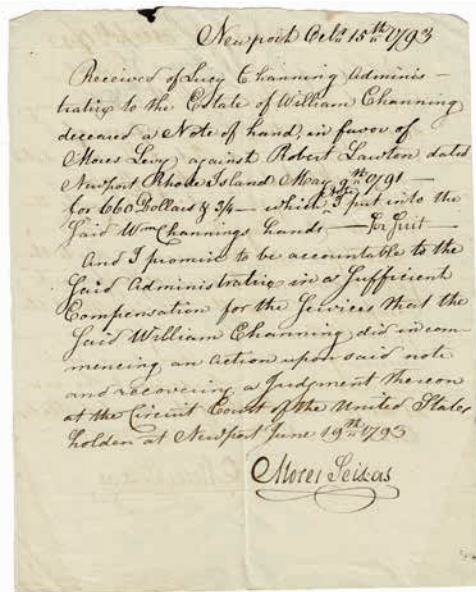 Newport Octr 15th 1793
Received of Lucy Channing Adminis-
tratix to the Estate of William Channing
deceased a Note of hand, in favor of
Moses Levy against Robert Lawton dated
Newport Rhode Island May 9th 1791 —
for 660 Dollars & 3/4 — which Note I put into the
Said Wm Channings hands — for Suit
And I promise to be accountable to the
Said Administratix in a Sufficient
Compensation for the Services that the
Said William Channing did in com-
mencing an Action upon said note
and recovering a Judgment thereon
at the Circuit Court of the United States
holden at Newport June 19th 1793
Moses Seixas